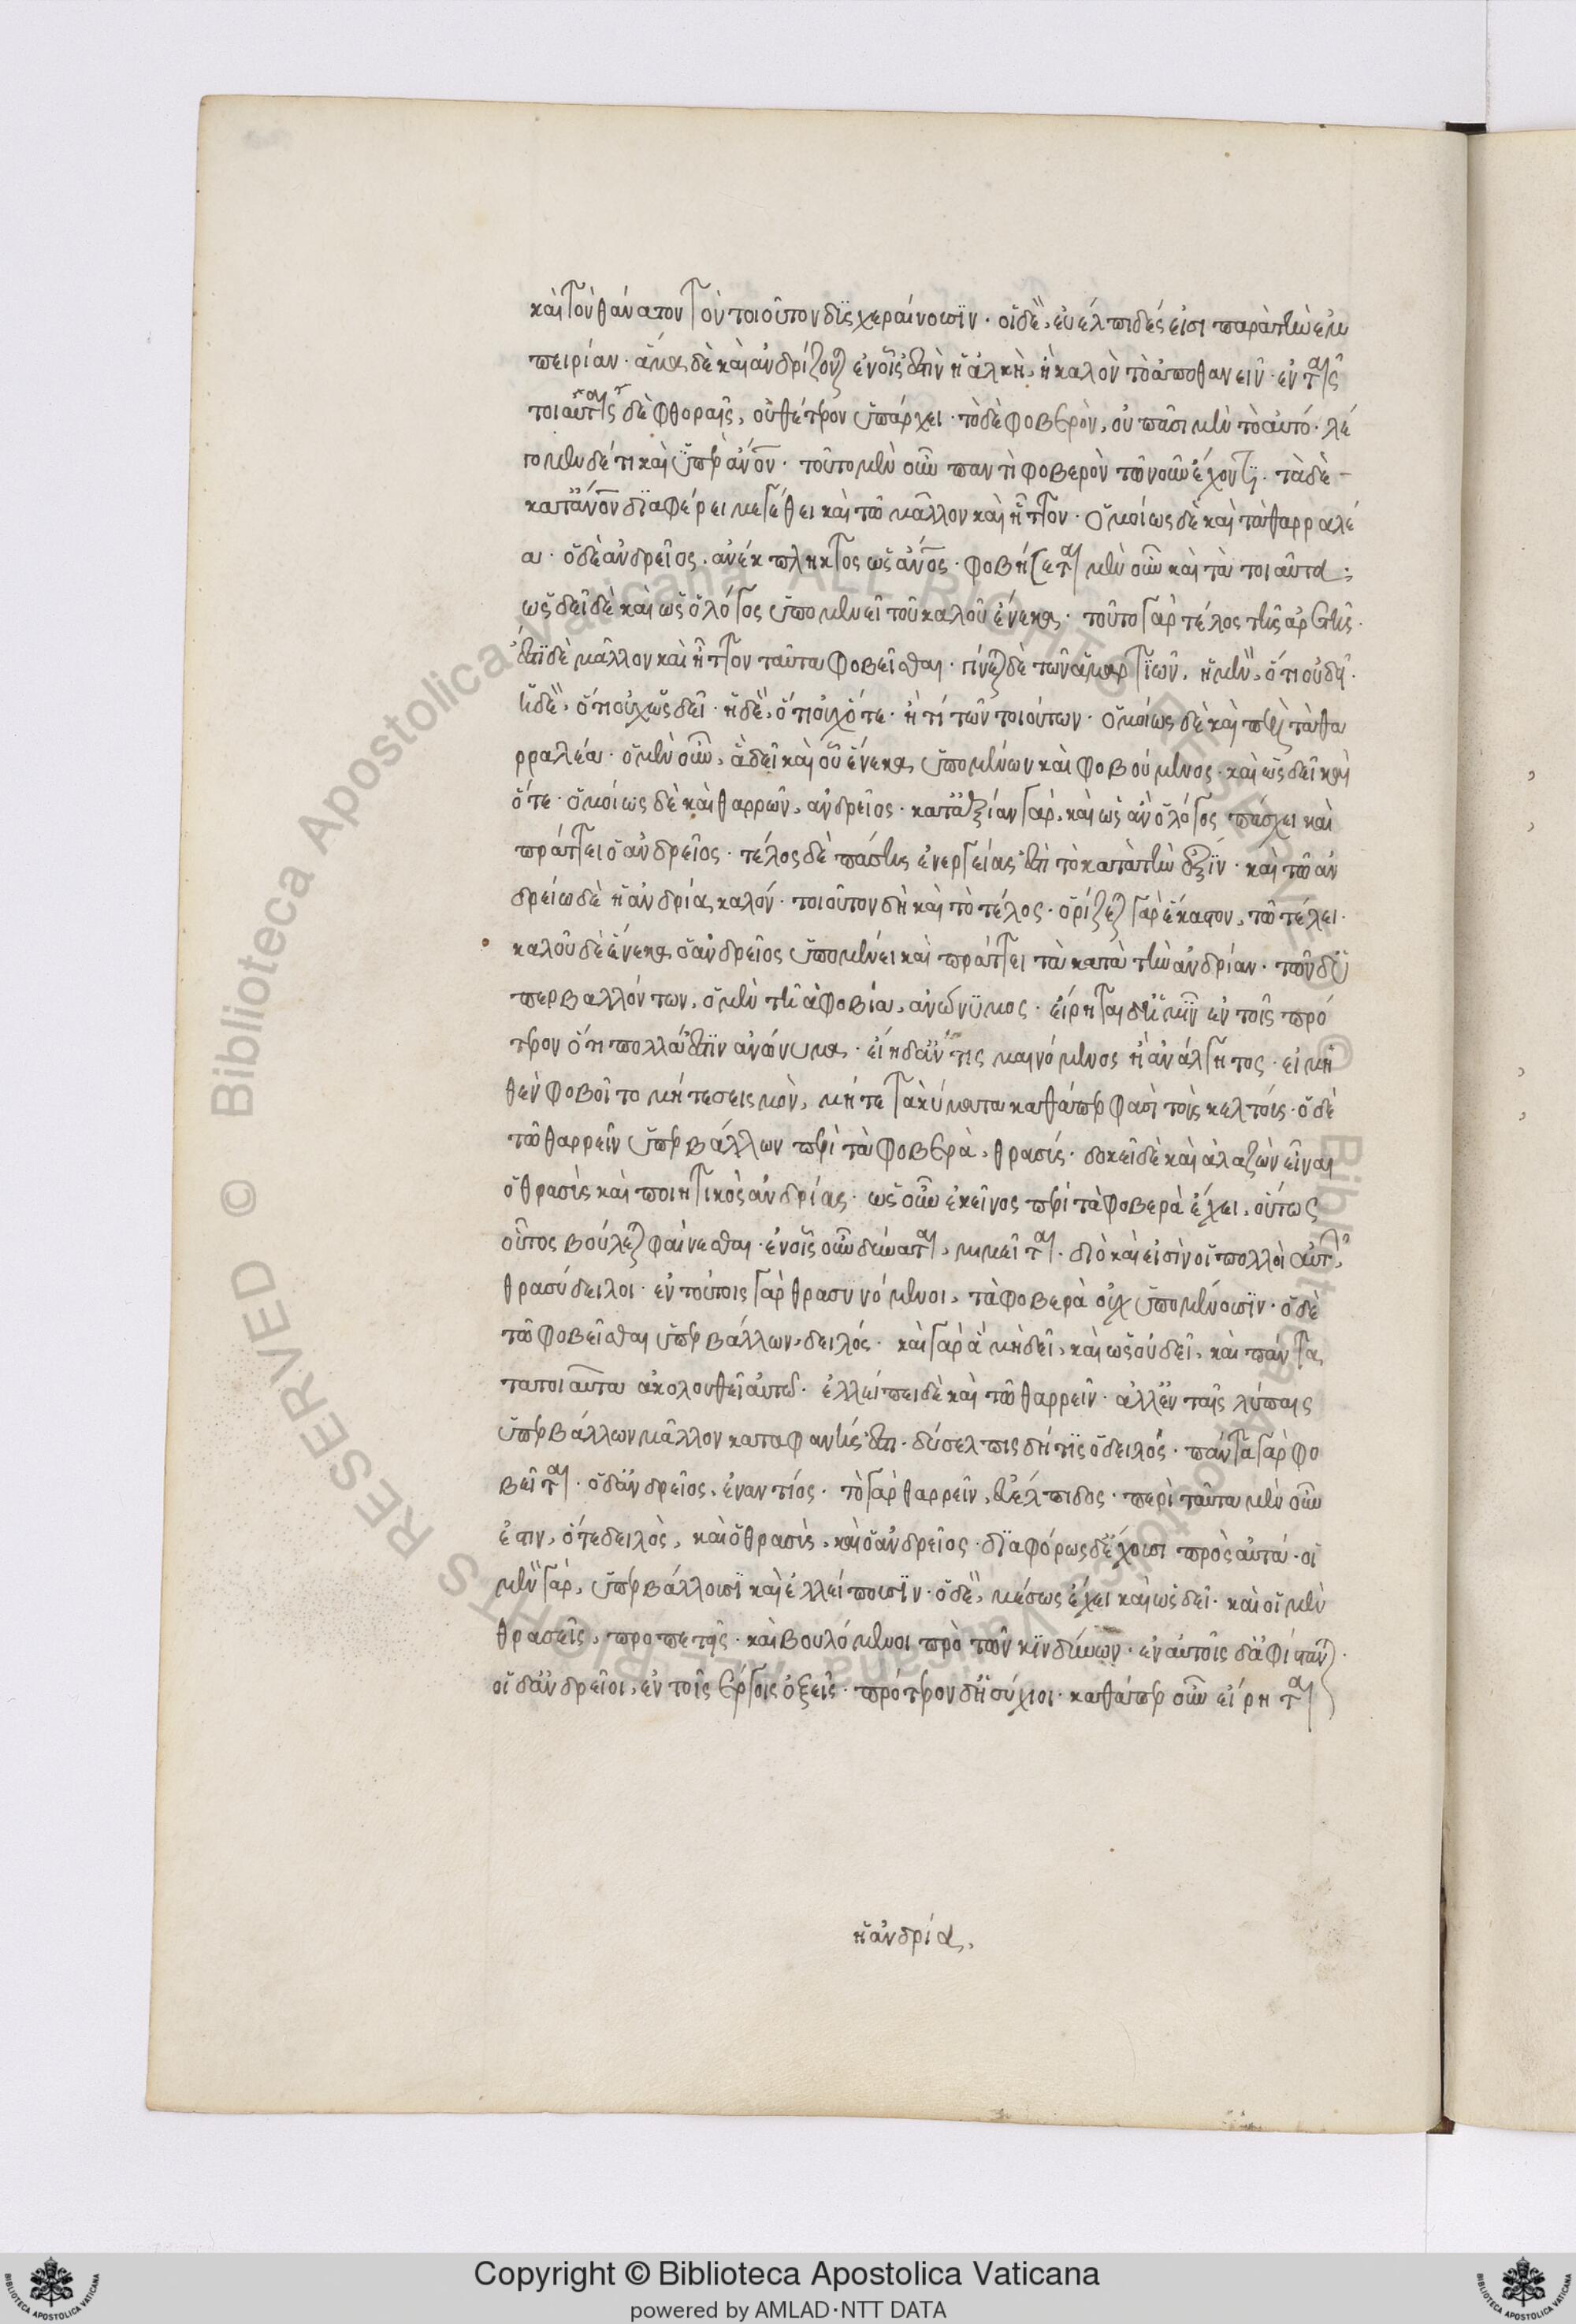 καὶ τὸν θάνατον τὸν τοιοῦτον δϊςχεραίνουσϊν· οἱ δὲ, εὐέλπιδές εἰσι παρὰ τὴν ἐμ
πειρίαν· ἅμα δὲ καὶ ἀνδρίζονται ἐν οἷς ἐστὶν ἡ ἀλκὴ, ἢ καλὸν τὸ ἀποθανεῖν· ἐν ταῖς
τοιαύταις δὲ φθοραῖς, οὐθέτερον ὑπάρχει· τὸ δὲ φοβερὸν, οὐ πᾶσι μὲν τὸ αὐτό· λέ
γομεν δέ τι καὶ ὑπὲρ ἄνον· τοῦτο μὲν οὖν παντὶ φοβερὸν τῶ νοῦν ἔχοντϊ· τὰ δὲ
κατ' ἄνον δϊαφέρει μεγέθει καὶ τῶ μᾶλλον καὶ ἧττον· ὁμοίως δὲ καὶ τὰ θαρραλέ
α· ὁ δὲ ἀνδρεῖος, ἀνέκπληκτος ὡς ἄνος· φοβήσεται μὲν οὖν καὶ τὰ τοιαῦτα·
ὡς δεῖ δὲ καὶ ὡς ὁ λόγος ὑπομενεῖ τοῦ καλοῦ ἕνεκα· τοῦτο γὰρ τέλος τῆς ἀρετῆς·
ἔστϊ δὲ μᾶλλον καὶ ἧττον ταῦτα φοβεῖσθαι· γίνεται δὲ τῶν ἁμαρτϊῶν, ἡ μὲν, ὅτι οὐ δεῖ·
ἡ δὲ, ὅτι οὐχ ὡς δεῖ· ἡ δὲ, ὅτι οὐχ ὅτε· ἤ τί τῶν τοιούτων· ὁμοίως δὲ καὶ περὶ τὰ θα
ρραλέα· ὁ μὲν οὖν, ἃ δεῖ καὶ οὗ ἕνεκα, ὑπομένων καὶ φοβούμενος· καὶ ὡς δεῖ καὶ
ὅτε· ὁμοίως δὲ καὶ θαρρῶν, ἀνδρεῖος· κατ' ἀξίαν γὰρ, καὶ ὡς ἂν ὁ λόγος πάσχει καὶ
πράττει ὁ ἀνδρεῖος· τέλος δὲ πάσης ἐνεργείας ἐστὶ τὸ κατὰ τὴν ἕξϊν· καὶ τῶ ἀν
δρείω δὲ ἡ ἀνδρία, καλόν· τοιοῦτον δὴ καὶ τὸ τέλος· ὁρίζεται γὰρ ἕκαστον, τῶ τέλει·
καλοῦ δὲ ἕνεκα, ὁ ἀνδρεῖος ὑπομένει καὶ πράττει τὰ κατὰ τὴν ἀνδρίαν· τῶν δ' ὑ
περβαλλόντων, ὁ μὲν τῆ ἀφοβία, ἀνώνϋμος· εἴρηται δ' ἡμϊν ἐν τοῖς πρό
τερον ὅτι πολλά ἐστϊν ἀνώνυμα· εἴη δ' ἄν τις μαινόμενος ἢ ἀνάλγητος· εἰ μη
θὲν φοβοῖτο μήτε σεισμὸν, μήτε τὰ κύματα καθάπερ φασὶ τοὺς κελτούς· ὁ δὲ
τῶ θαρρεῖν ὑπερβάλλων περὶ τὰ φοβερὰ, θρασύς· δοκεῖ δὲ καὶ ἀλαζὼν εἶναι
ὁ θρασὺς καὶ ποιητικὸς ἀνδρίας· ὡς οὖν ἐκεῖνος περὶ τὰ φοβερὰ ἔχει, οὕτως
οὗτος βούλεται φαίνεσθαι· ἐν οἷς οὖν δύναται, μιμεῖται· διὸ καὶ εἰσὶν οἱ πολλοὶ αὐτῶν,
θρασύδειλοι· ἐν τούτοις γὰρ θρασυνόμενοι, τὰ φοβερὰ οὐχ ὑπομένουσϊν· ὁ δὲ
τῶ φοβεῖσθαι ὑπερβάλλων, δειλός· καὶ γὰρ ἃ μὴ δεῖ, καὶ ὡς οὐ δεῖ, καὶ πάντα
τα τοιαῦτα ἀκολουθεῖ αὐτῶ· ἐλλείπει δὲ καὶ τῶ θαρρεῖν· ἀλλ' ἐν ταῖς λύπαις
ὑπερβάλλων μᾶλλον καταφανής ἐστι· δύσελπις δή τϊς ὁ δειλός· πάντα γὰρ φο
βεῖται· ὁ δ' ἀνδρεῖος, ἐναντίος· τὸ γὰρ θαρρεῖν, εὐέλπιδος· περὶ ταῦτα μὲν οὖν
ἐστιν, ὅ τε δειλὸς, καὶ ὁ θρασὺς, καὶ ὁ ἀνδρεῖος· δϊαφόρως δ' ἔχουσι πρὸς αὐτά· οἱ
μὲν γὰρ, ὑπερβάλλουσϊ καὶ ἐλλείπουσϊν· ὁ δὲ, μέσως ἔχει καὶ ὡς δεῖ· καὶ οἱ μὲν
θρασεῖς, προπετεῖς· καὶ βουλόμενοι πρὸ τῶν κϊνδύνων· ἐν αὐτοῖς δ' ἀφίστανται·
οἱ δ' ἀνδρεῖοι, ἐν τοῖς ἔργοις ὀξεῖς· πρότερον δ' ἡσύχιοι· καθάπερ οὖν εἴρηται
ἡ ἀνδρία,
Copyright © Biblioteca Apostolica Vaticana
powered by AMLAD·NTT DATA